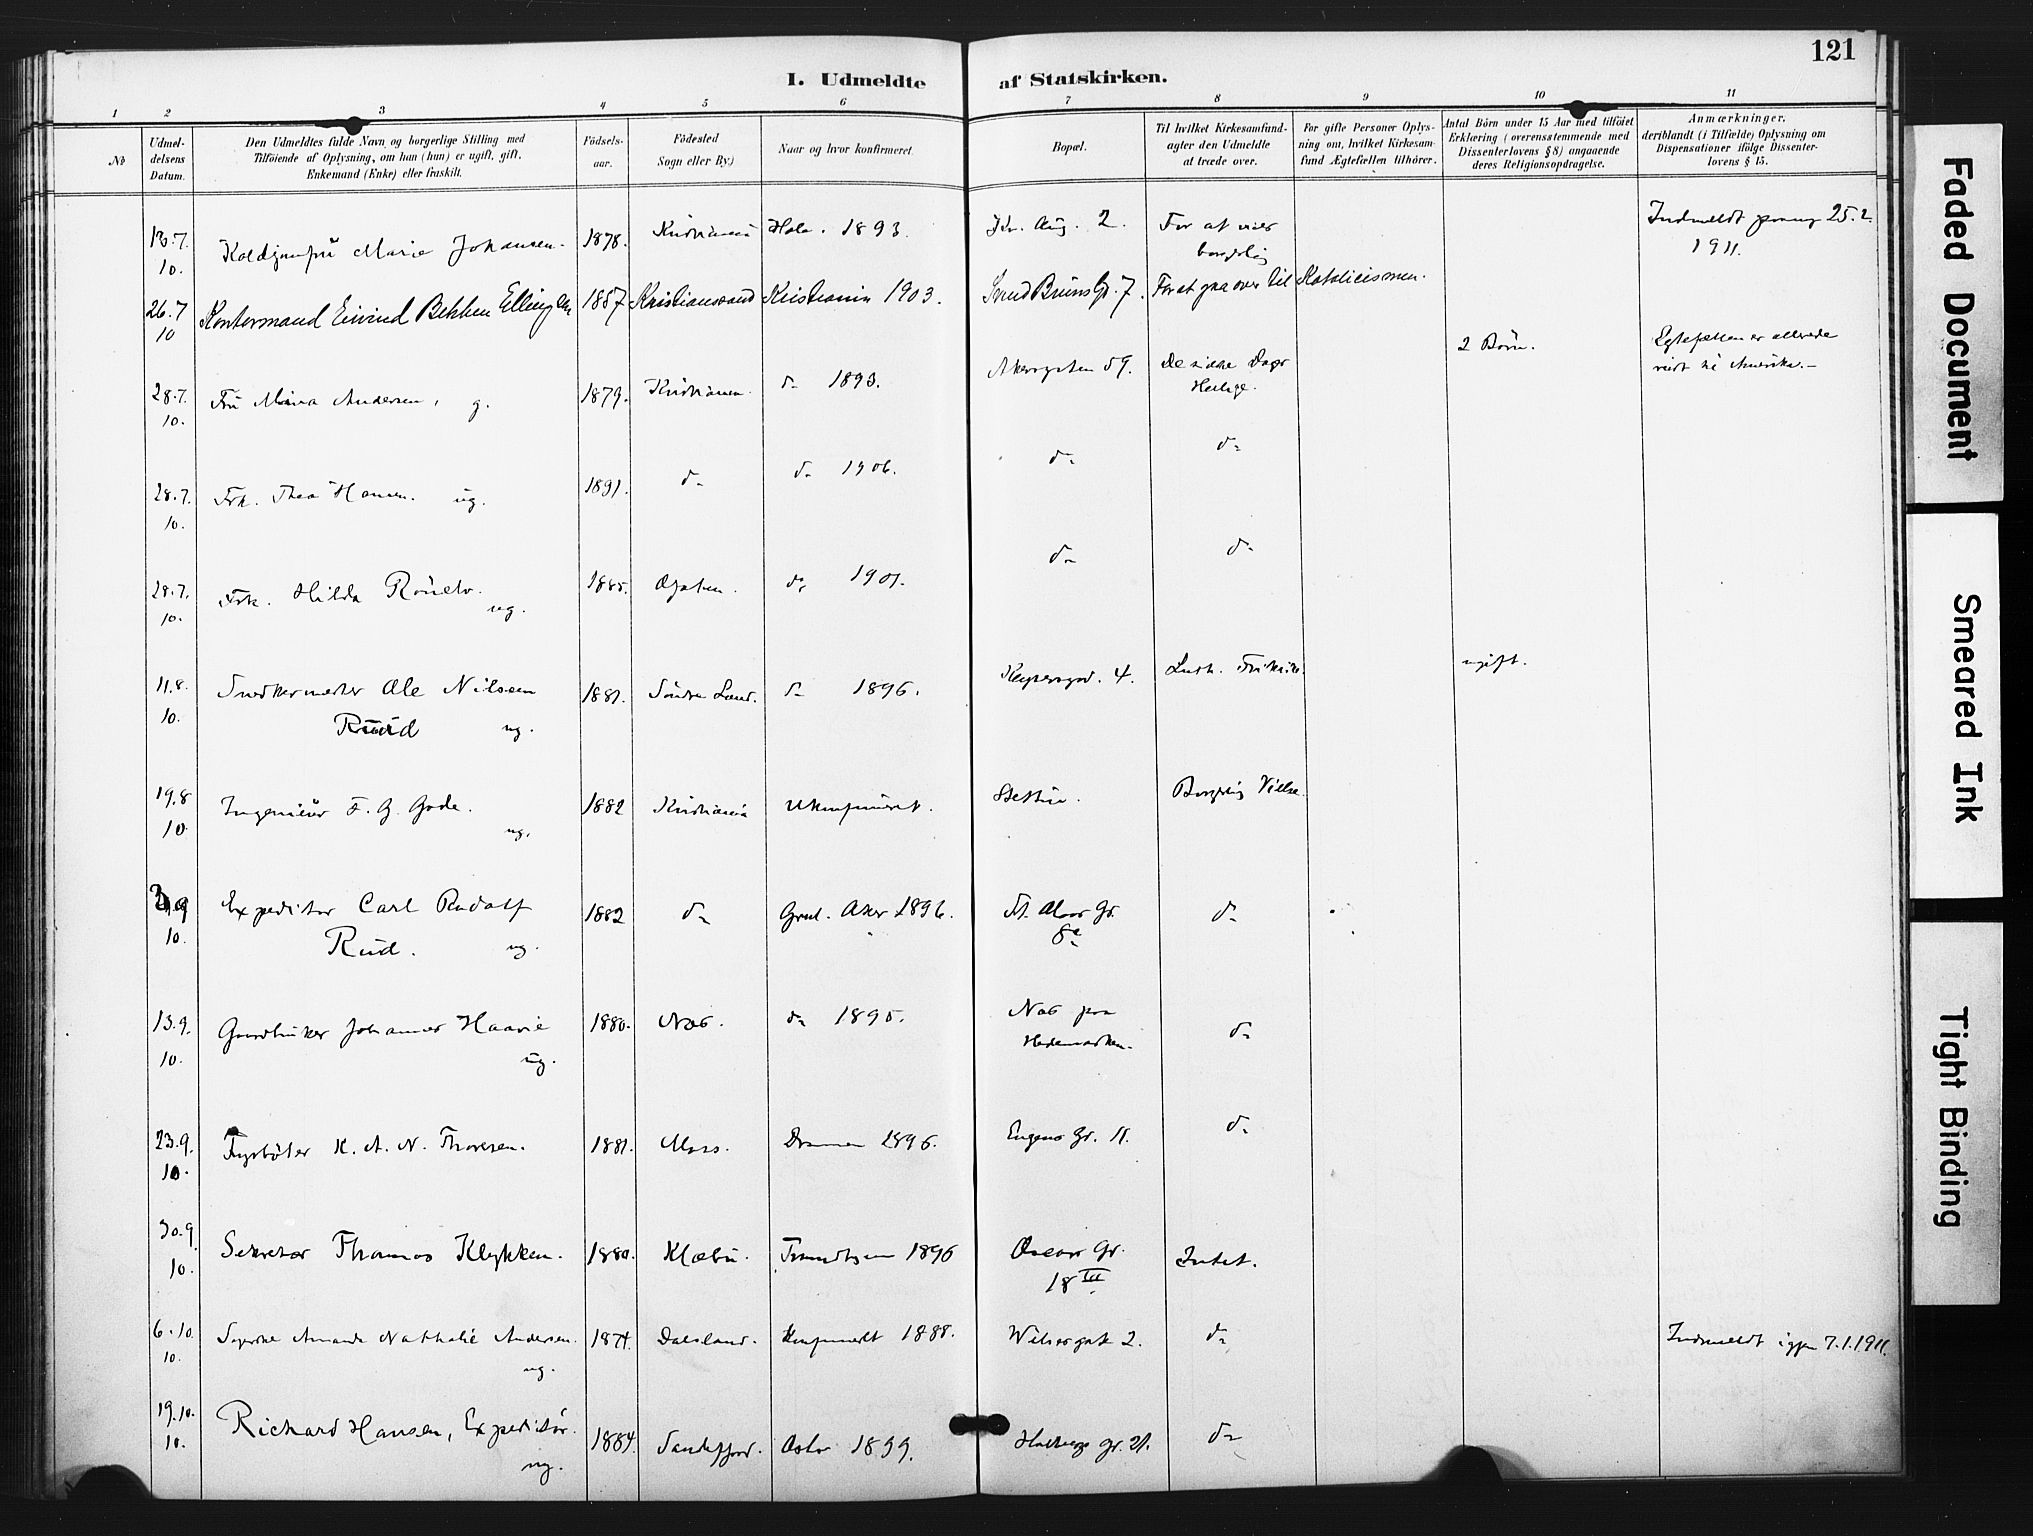 121
I. Udmeldte af Statskirken.
1 2 3 4 5 6 7 8 9 10 11
No
Udmel-
delsens
Datum.
Den Udmeldtes fulde Navn og borgerlige Stilling med
Tilføiende af Oplysning, om han (hun) er ugift, gift,
Enkemand (Enke) eller fraskilt.
Födsels-
aar.
Födested
Sogn eller By.)
Naar og hvor konfirmeret.
Bopæl.
Til hvilket Kirkesamfund-
agter den Udmeldte
at træde over.
For gifte Personer Oplys-
ning om, hvilket Kirkesam-
fund Ægtefællen tilhörer.
Antal Börn under 15 Aar med tilföiet
Erklæring (overensstemmende med
Dissenterlovens § 8) angaaende
deres Religionsopdragelse.
Anmærkninger,
deriblandt (i Tilfælde) Oplysning om
Dispensationer ifölge Dissenter-
lovens § 15.
13.7.
10.
Koldjomfru Marie Johansen.
1878.
Kristiania
Hole. 1893.
Kr. Aug. 2.
For at vies
borgerlig
Indmeldt paany 25.2.
1911.
26.7
10
Kontormand Eivind Bekken Ellingsen
1887
Kristianssand
Kristiania 1903.
Svend Bruns Gd. 7.
For at gaa over til Katolicismen.
28.7.
10.
Fru Mina Andersen, g.
1879.
Kristiania.
do 1893.
Akersgaten 59.
De sidste Dages
Hellige.
2 Börn.
Egtefellen er allerede
reist til Amerika.-
28.7.
10.
Frk. Thea Hansen. ug.
1891.
do
do 1906.
do
do
28.7.
10.
Frk. Hilda
ug.
1885.
do 1901.
do
do
11.8.
10.
Snedkermester Ole Nilsen
Ruud ug.
1881.
Söndre Land.
do 1896.
Keysersgd. 4.
Luth. Frikirke.
ugift.
19.8
10.
Ingeniör F. G. Gade.
ug.
1882
Kristiania
Ukonfirmeret.
Stettin.
Borgerlig Vielse.
9
10.
Expeditör Carl Rudolf
Rud. ug.
1882
do
Grul. Aker 1896.
St. Olavs Gd.
8a
do
13.9.
10.
Gaardbruker Johannes Haavie
ug.
1880.
Næs.
do 1895.
Næs paa
Hedemarken.
do
23.9.
10.
Fyrböter K. A. N. Thoresen.
1881.
Moss.
Drammen 1896.
Eugenes Gd. 11.
do
30.9.
10.
Sekretær Thomas Klykken.
1880.
Klæbu.
Trondhjem 1896
Oscars Gd.
18 III
Intet.
6.10.
10.
Syerske Amanda Nathalie Andersen.
ug.
1874.
Dalsland.
Konfirmeret 1888.
Wilsesgate 2.
do
Indmeldt igjen 7.1.1911.
19.10.
10.
Richard Hansen, Expeditör.
ug.
1884.
Sandefjord.
Oslo 1899.
Holbergs gd. 21.
do
Faded Document
Smeared Ink
Tight Binding